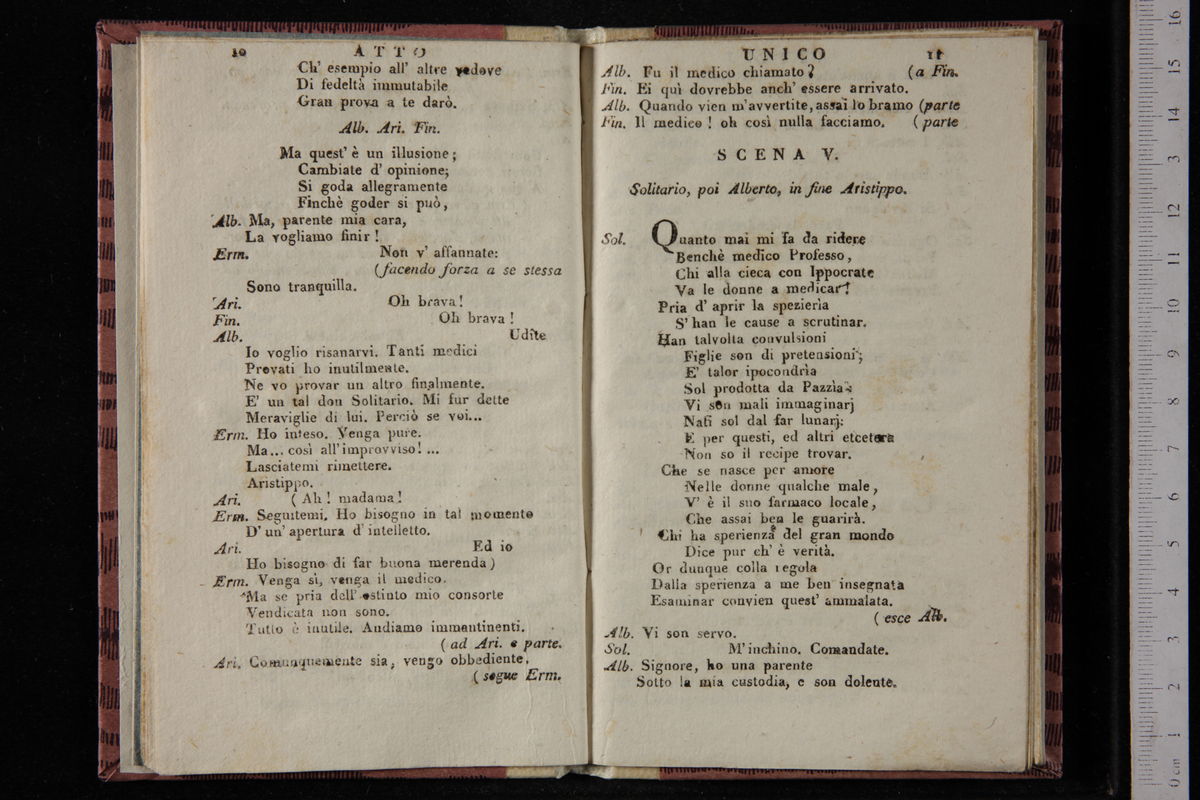 10 ATTO
Ch' esempio all' altre vedove
Di fedeltà immutabile
Gran prova a te darò.
Alb. Ari. Fin.
Ma quest' è un illusione;
Cambiate d' opinione;
Si goda allegramente
Finchè goder si può,
Alb. Ma, parente mia cara,
La vogliamo finir!
Erm. Non v' affannate:
(facendo forza a se stessa
Sono tranquilla.
Ari. Oh brava!
Fin. Oh brava!
Alb. Udite
Io voglio risanarvi. Tanti medici
Provati ho inutilmente.
Ne vo provar un altro finalmente.
E' un tal don Solitario. Mi fur dette
Meraviglie di lui. Perciò se voi...
Erm. Ho inteso. Venga pure.
Ma... così all' improvviso! ...
Lasciatemi rimettere.
Aristippo.
Ari. (Ah! madama!
Erm. Seguitemi. Ho bisogno in tal momento
D' un' apertura d' intelletto.
Ari. Ed io
Ho bisogno di far buona merenda)
Erm. Venga sì, venga il medico.
Ma se pria dell' estinto mio consorte
Vendicata non sono.
Tutto è inutile. Andiamo immantinenti.
(ad Ari. e parte.
Ari. Comunquemente sia, vengo obbediente.
(segue Erm.
UNICO 11
Alb. Fu il medico chiamato? (a Fin.
Fin. Ei quì dovrebbe anch' essere arrivato.
Alb. Quando vien m'avvertite, assai lo bramo (parte
Fin. Il medico! oh così nulla facciamo. (parte
SCENA V.
Solitario, poi Alberto, in fine Aristippo.
Sol. Quanto mai mi fa da ridere
Benchè medico Professo,
Chi alla cieca con Ippocrate
Va le donne a medicar!
Pria d' aprir la spezierìa
S' han le cause a scrutinar.
Han talvolta convulsioni
Figlie son di pretensioni;
E' talor ipocondrìa
Sol prodotta da Pazzìa:
Vi son mali immaginarj
Nati sol dal far lunarj:
E per questi, ed altri etcetera
Non so il recipe trovar.
Che se nasce per amore
Nelle donne qualche male,
V' è il suo farmaco locale,
Che assai ben le guarirà.
Chi ha sperienza del gran mondo
Dice pur ch' è verità.
Or dunque colla regola
Dalla sperienza a me ben insegnata
Esaminar convien quest' ammalata.
(esce Alb.
Alb. Vi son servo.
Sol. M' inchino. Comandate.
Alb. Signore, ho una parente
Sotto la mia custodia, e son dolente.
16
15
14
13
12
11
10
9
8
7
6
5
4
3
2
1
0 cm